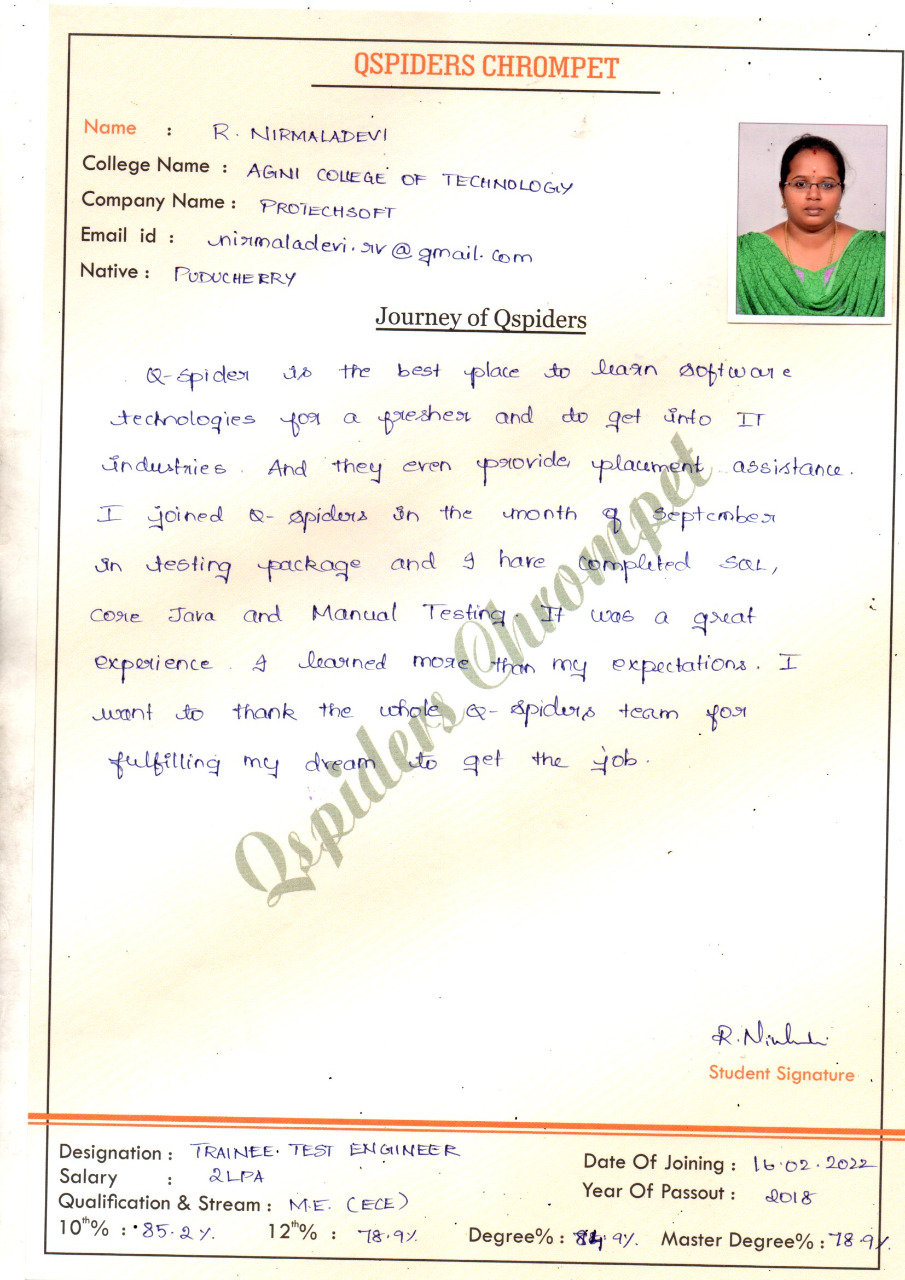 QSPIDERS CHROMPET
Name : R. NIRMALADEVI
College Name : AGNI COLLEGE OF TECHNOLOGY
Company Name : PROTECHSOFT
Email id : nirmaladevi.rv@gmail.com
Native : PUDUCHERRY
Journey of Qspiders
Q-spider is the best place to learn software
technologies for a fresher and to get into IT
industries. And they even provide placement assistance.
I joined Q-spiders in the month of September
in testing package and I have completed SQL,
core Java and Manual Testing. It was a great
experience. I learned more than my expectations. I
want to thank the whole Q-spiders team for
fulfilling my dream to get the job.
Qspiders Chrompet
R. Nirmaladevi
Student Signature
Designation : TRAINEE. TEST ENGINEER
Date Of Joining : 16.02.2022
Salary : 2LPA
Year Of Passout : 2018
Qualification & Stream : M.E. (ECE)
10th% : 85.2% 12th% : 78.9% Degree% : 84.9% Master Degree% : 78.9%